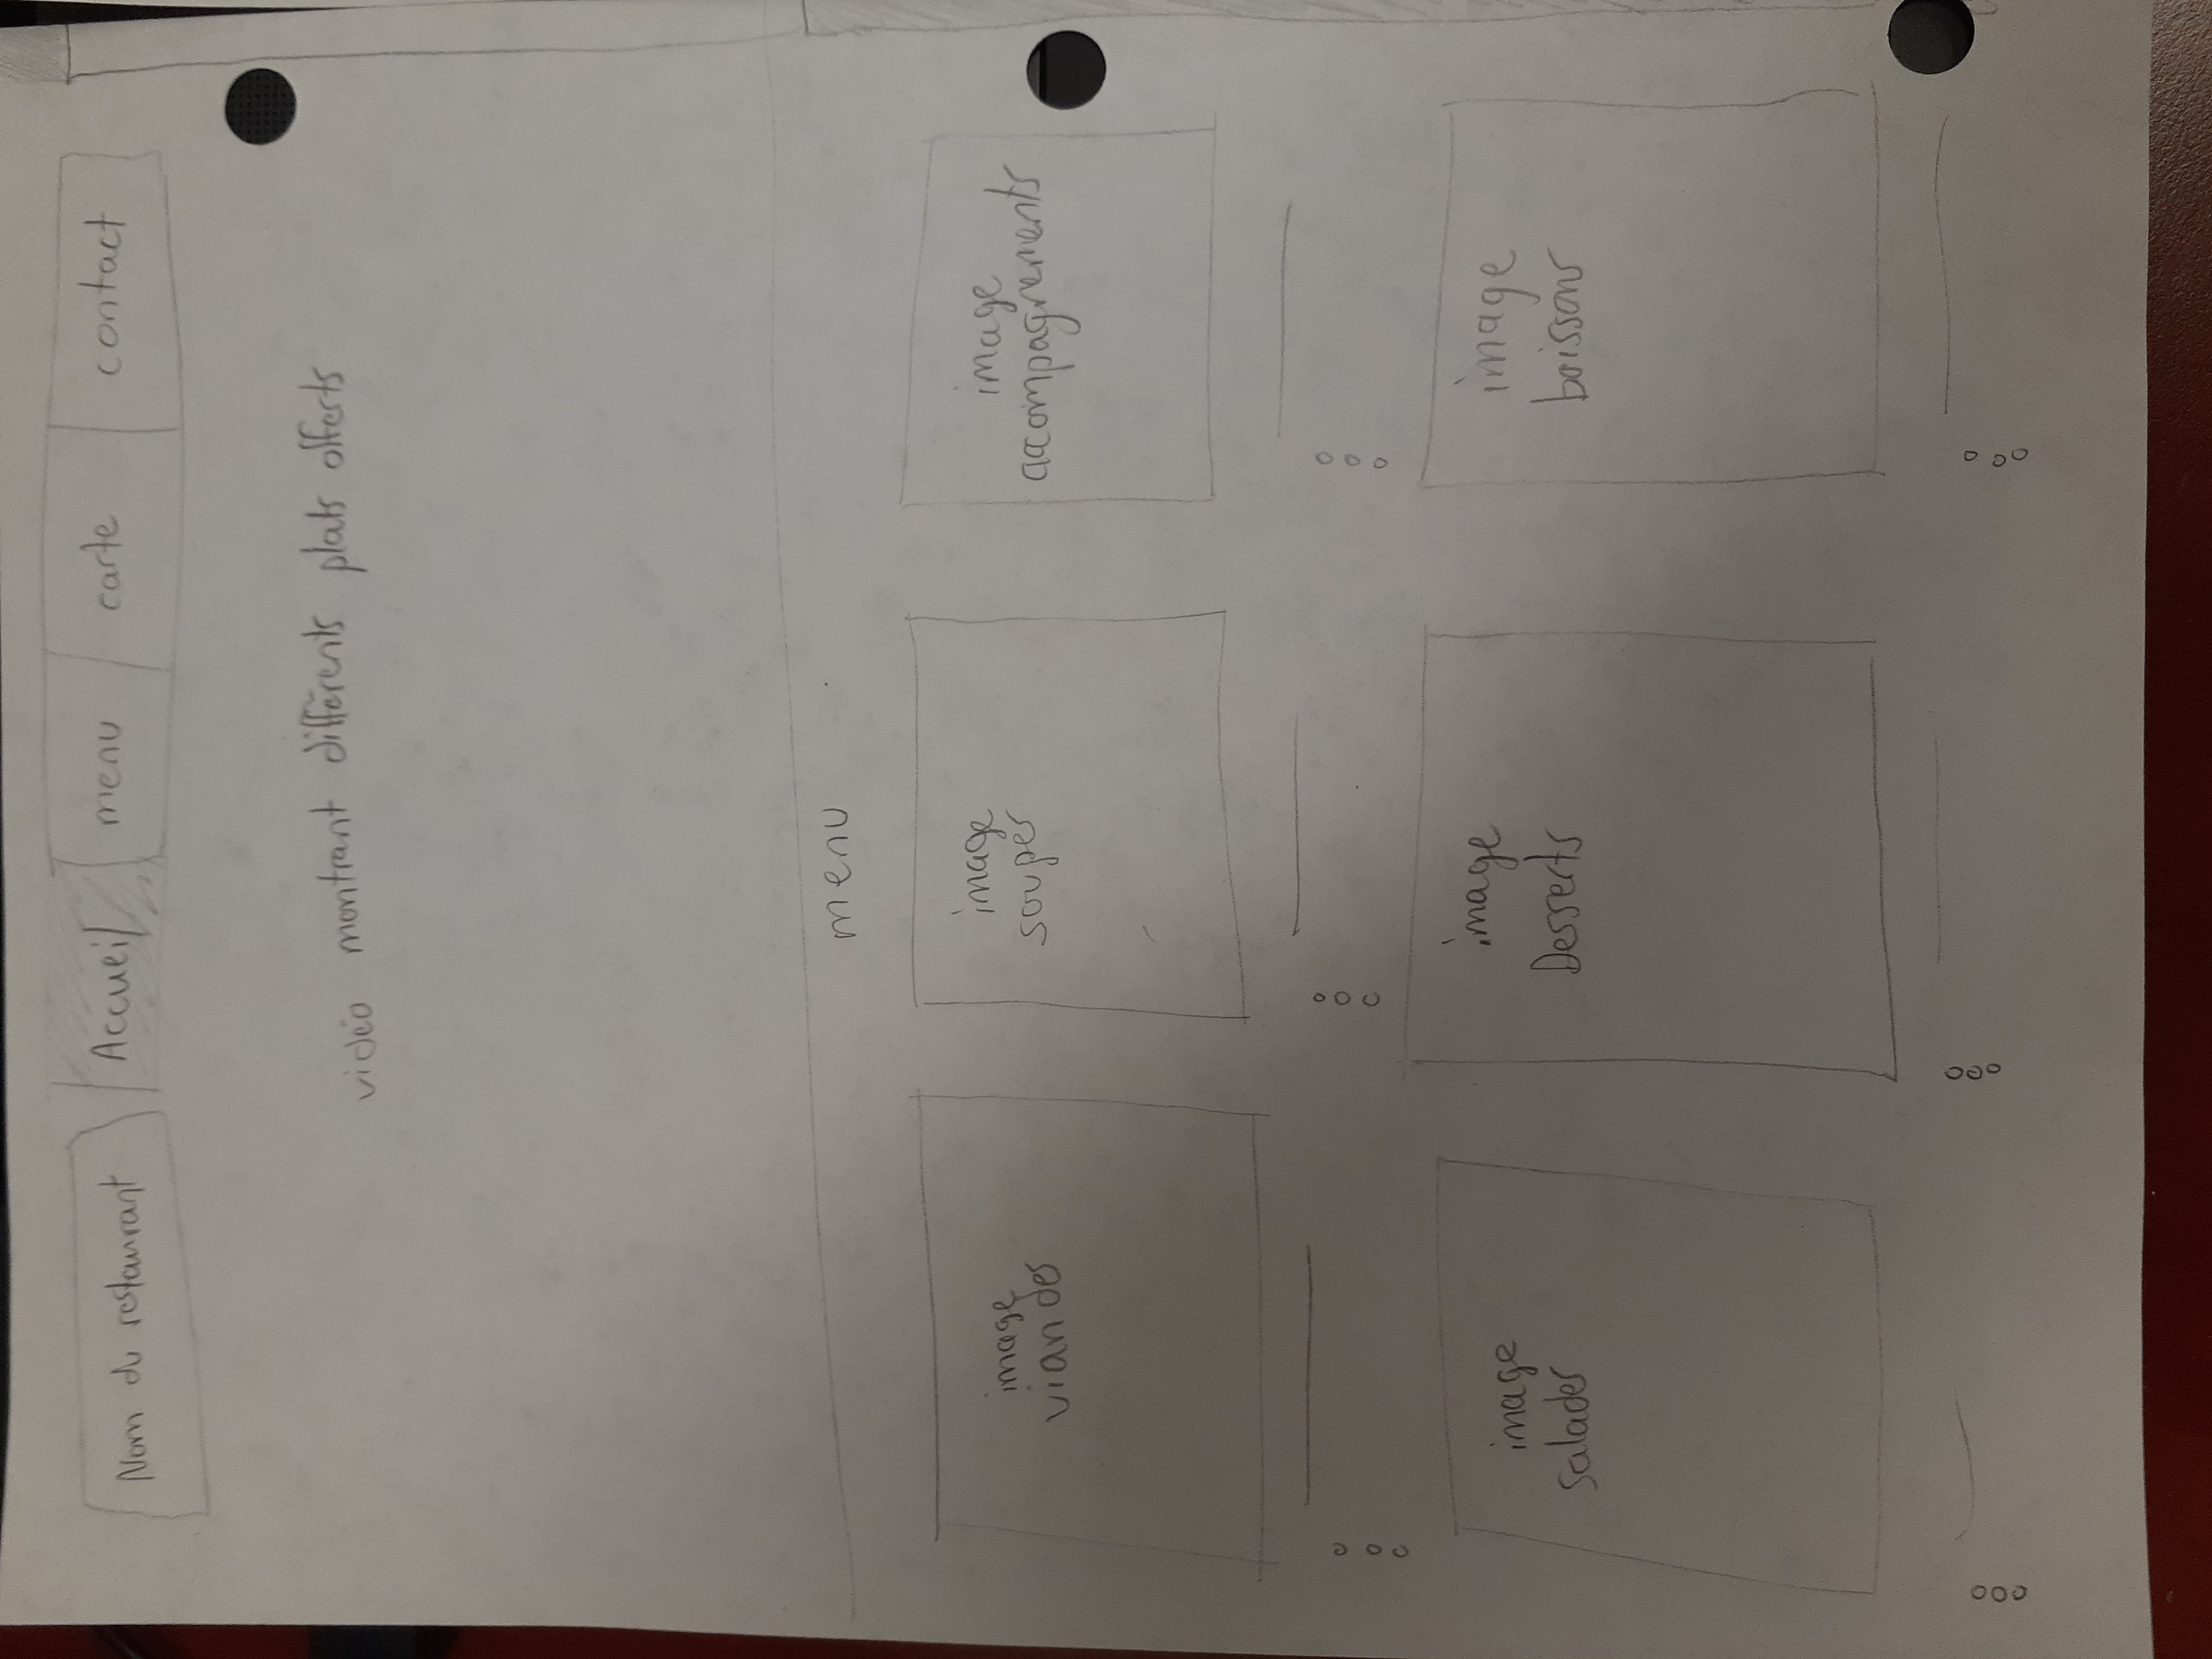 Nom du restaurant
Accueil
menu
carte
contact
vidéo montrant différents plats offerts
menu
image
viandes
image
soupes
image
accompagnements
image
salades
image
Desserts
image
boissons